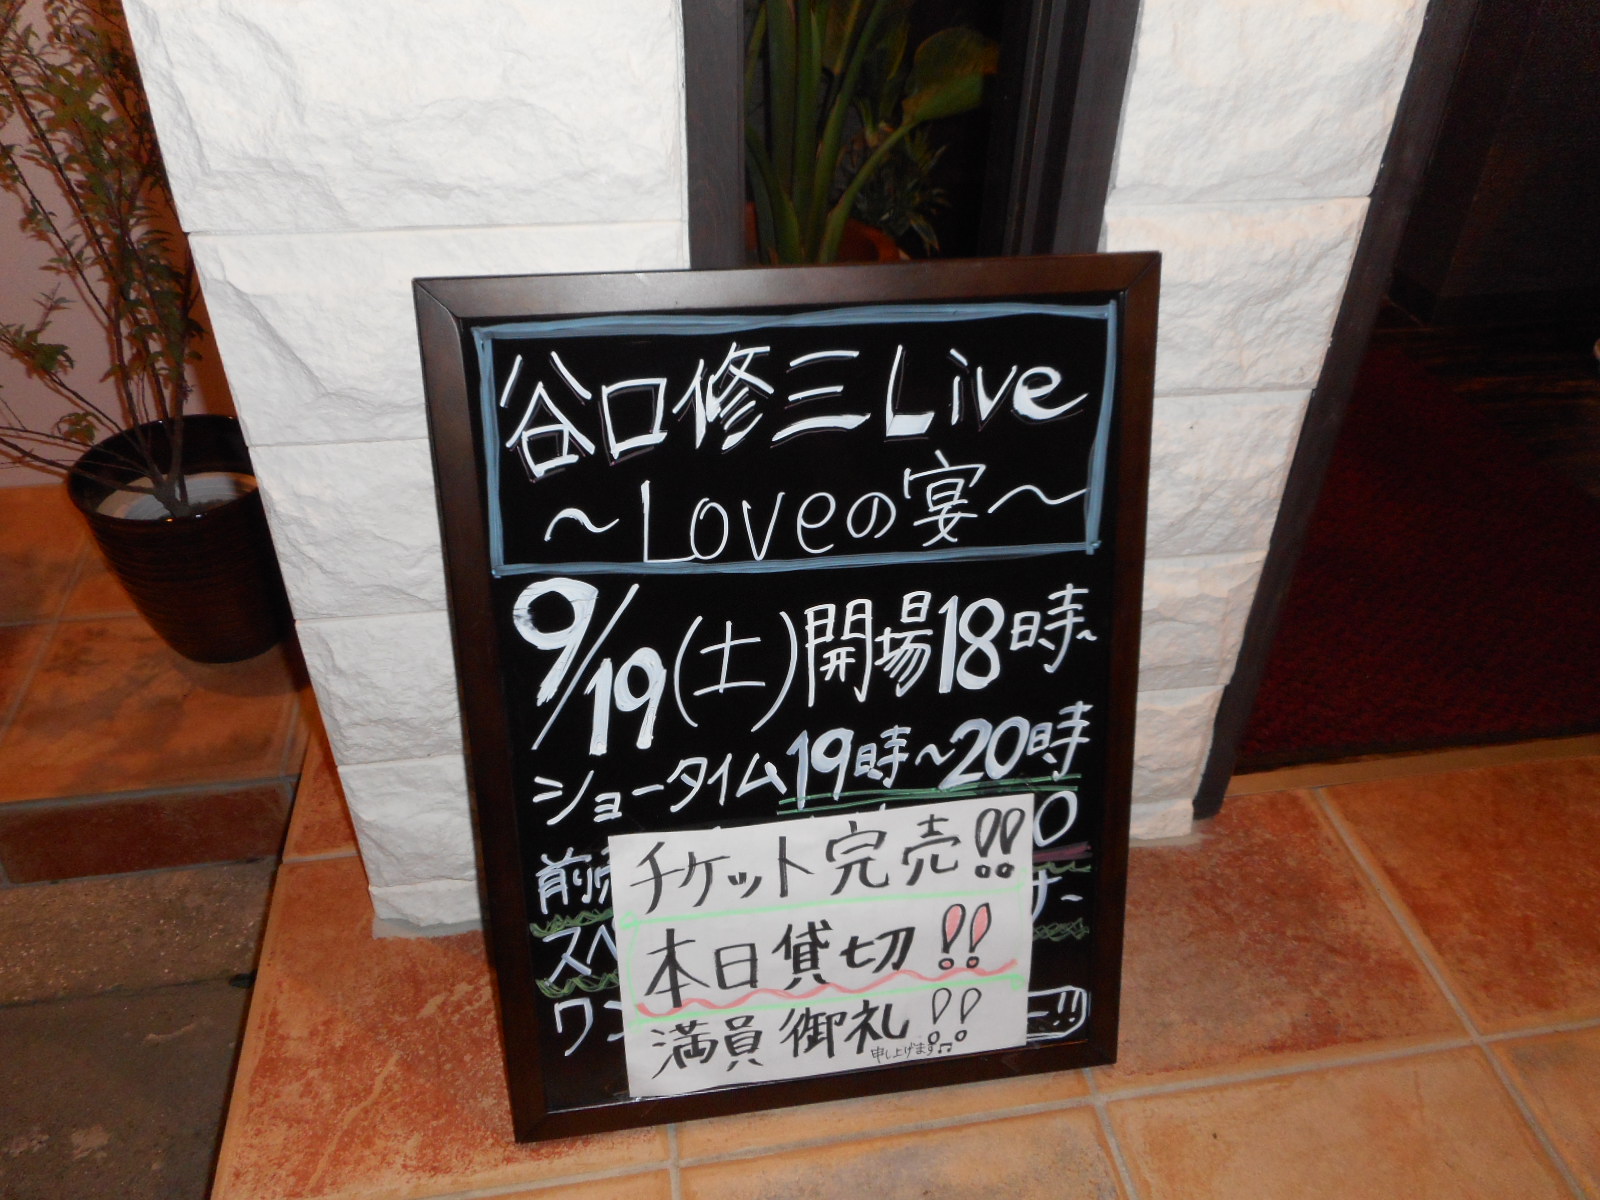 谷口修三Live
～Loveの宴～
9/19(土)開場18時～
ショータイム19時～20時
前
スペ
ワン
チケット完売!!
本日貸切!!
満員御礼!!
申し上げます♫